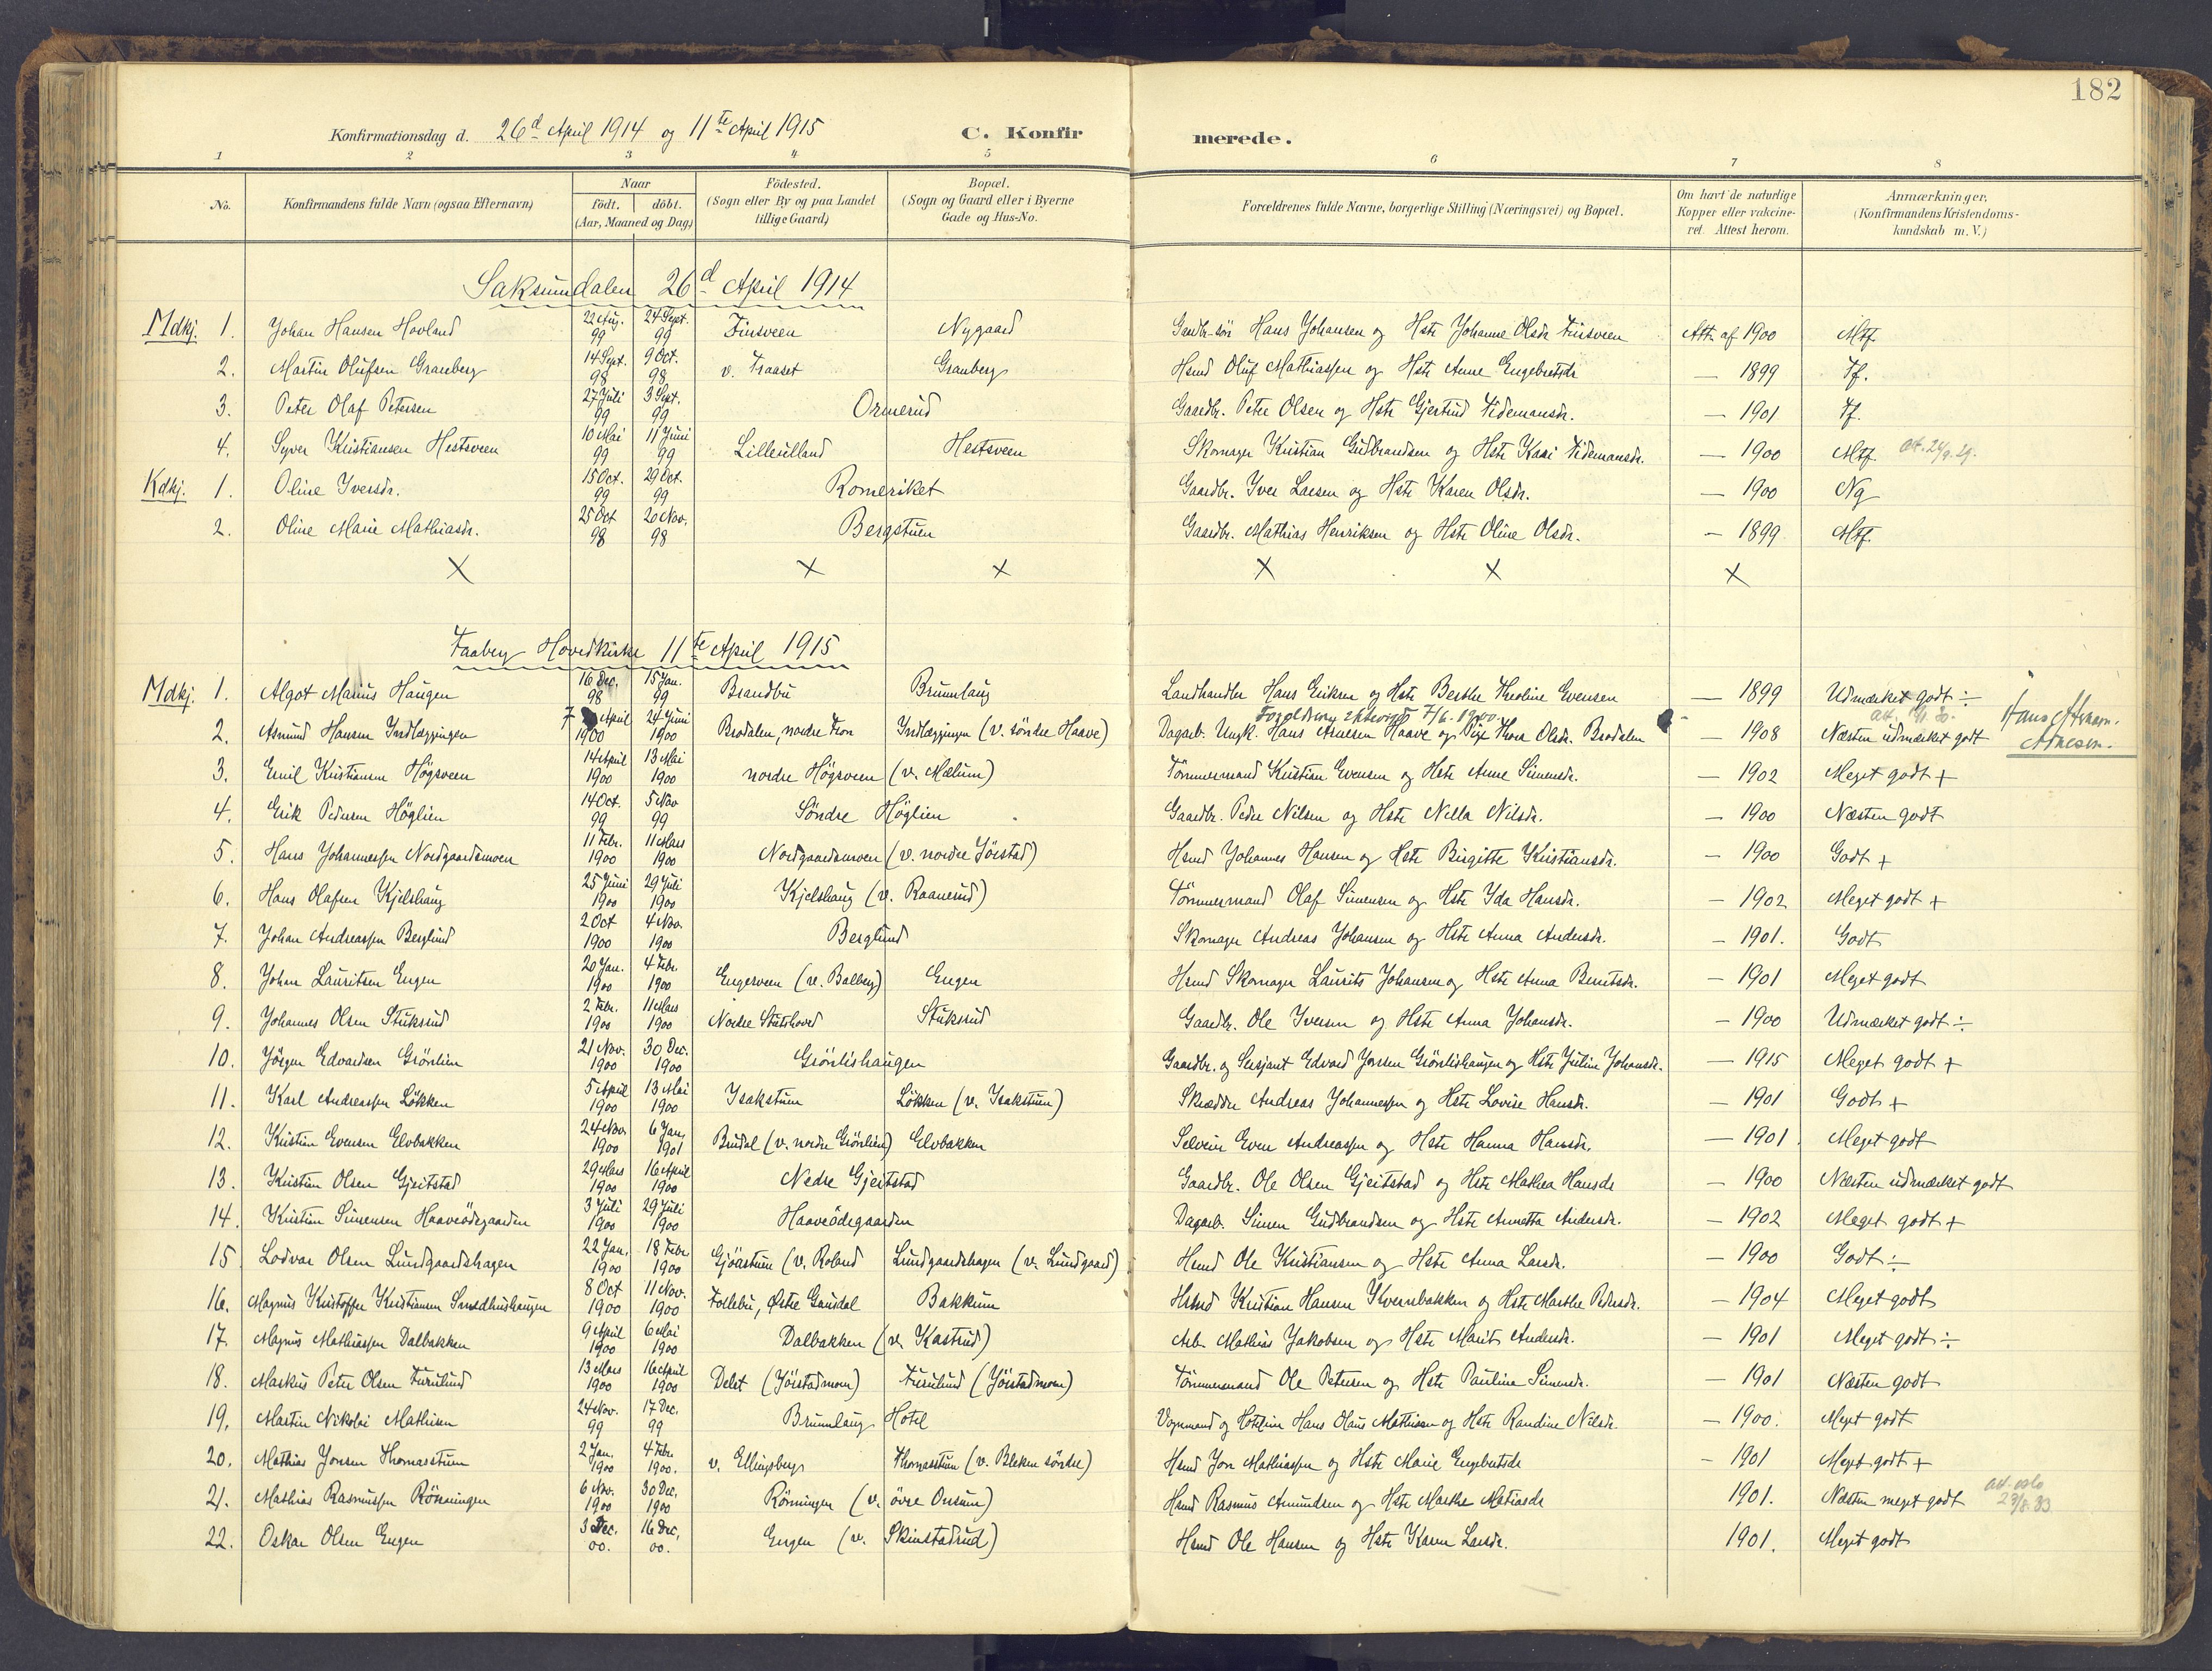 182
Konfirmationsdag d. 26d April 1914 og 11te April 1915 C. Konfirmerede.
1 2 3 4 5 6 7 8
No. Konfirmandens fulde Navn (ogsaa Efternavn) Naar födt. döbt. (Aar, Maaned og Dag) Födested. (Sogn eller By og paa Landet tillige Gaard) Bopæl. (Sogn og Gaard eller i Byerne Gade og Hus-No. Forældrenes fulde Navne, borgerlige Stilling (Næringsvei) og Bopæl. Om havt de naturlige Kopper eller vakcineret. Attest herom. Anmærkninger, (Konfirmandens Kristendomskundskab m. V.)
Saksumdalen 26d April 1914
Mdkj. 1. Johan Hansen Hovland 22 Aug. 99 24 Sept. 99 Finsveen Nygaard Gaardbr-sön Hans Johansen og Hstr Johanne Olsdr Finsveen Att. af 1900 Mtf.
2. Martin Olufsen Granberg 14 Sept. 98 9 Oct. 98 v. Fraaset Granberg Hsmd Oluf Mathiassen og Hstr Anne Engebretsdr — 1899 Tf.
3. Peter Olaf Petersen 27 Juli 99 3 Sept. 99 Ormerud Gaardbr. Peter Olsen og Hstr Gjertrud Tidemansdr. — 1901 Tf.
4. Syver Kristiansen Hestsveen 10 Mai 99 11 Juni 99 Lilleulland Hestsveen Skomager Kristian Gudbrandsen og Hstr Kari Tidemansdr. — 1900 Mtf. att. 24/9.29.
Kdkj. 1. Oline Iversdr. 15 Oct. 99 29 Oct. 99 Romeriket Gaardbr. Iver Larsen og Hstr Karen Olsdr. — 1900 Ng
2. Oline Marie Mathiasdr. 25 Oct 98 20 Nov. 98 Bergstuen Gaardbr. Mathias Henriksen og Hstr Oline Olsdr. — 1899 Mtf.
X X X X X X
Faaberg Hovedkirke 11te April 1915
Mdkj. 1. Algot Marius Haugen 16 Dec. 98 15 Jan. 99 Brandbu Brunlaug Landhandler Hans Eriksen og Hstr Berthe Theoline Evensen — 1899 Udmærket godt ÷
Forældrene ektevigd 7/6-1900
2. Asmund Hansen Indlæggingen 7 April 1900 24 Juni 1900 Brodalen, nordre Fron Indlæggingen (v. söndre Haave) Dagarb. Ungk. Hans Arnesen Haave og Pige Thora Olsdr. Brodalen — 1908 Næsten udmærket godt Arnesen.
3. Emil Kristiansen Högsveen 14 April 1900 13 Mai 1900 nordre Högsveen (v. Mælum) Tömmermand Kristian Evensen og Hstr Anne Simensdr. — 1902 Meget godt +
4. Erik Pedersen Höglien 14 Oct. 99 5 Nov 99 Söndre Höglien Gaardbr. Peder Nilsen og Hstr Nella Nilsdr. — 1900 Næsten godt
5. Hans Johannessen Nordgaardsmoen 11 Febr. 1900 11 Mars 1900 Nordgaardsmoen (v. nordre Jörstad) Hsmd Johannes Hansen og Hstr Birgitte Kristiansdr. — 1900 Godt +
6. Hans Olafsen Kjelshaug 25 Juni 1900 29 Juli 1900 Kjelshaug (v. Raanerud) Tömmermand Olaf Simensen og Hstr Ida Hansdr. — 1902 Meget godt +
7. Johan Andreassen Berglund 2 Oct 1900 4 Nov. 1900 Berglund Skomager Andreas Johansen og Hstr Anna Andersdr. — 1901. Godt
8. Johan Lauritsen Engen 20 Jan. 1900 4 Febr. 1900 Engesveen (v. Balberg) Engen Hsmd Skomager Laurits Johansen og Hstr Anna Berntsdr. — 1901 Meget godt
9. Johannes Olsen Stuksrud 2 Febr. 1900 11 Mars 1900 Nordre Stutshoved Stuksrud Gaardbr. Ole Iversen og Hstr Anna Johansdr. — 1900 Udmærket godt ÷
10. Jörgen Edvardsen Grönlien 21 Nov. 1900 30 Dec. 1900 Grönlishaugen Gaardbr. og Sersjant Edvard Jonsen Grönlishaugen og Hstr Juline Johansdr. — 1915 Meget godt +
11. Karl Andreassen Lökken 5 April 1900 13 Mai 1900 Isakstuen Lökken (v. Isakstuen) Skrædder Andreas Johannessen og Hstr Lovise Hansdr. — 1901 Godt +
12. Kristian Evensen Elvbakken 24 Nov. 1900 6 Jan. 1901 Brudal (v. nordre Grönlien) Elvbakken Selveier Even Andreassen og Hstr Hanna Hansdr. — 1901. Meget godt
13. Kristian Olsen Gjeitstad 29 Mars 1900 16 April 1900 Nedre Gjeitstad Gaardbr. Ole Olsen Gjeitstad og Hstr Mathea Hansdr — 1900 Næsten udmærket godt
14. Kristian Simensen Haaveödegaarden 3 Juli 1900 29 Juli 1900 Haaveödegaarden Dagarb. Simen Gudbrandsen og Hstr Annetta Andersdr. — 1902 Meget godt +
15. Lodvar Olsen Lundgaardshagen 22 Jan. 1900 18 Febr 1900 Gjöastuen (v. Roland Lundgaardshagen (v. Lundgaard) Hsmd Ole Kristiansen og Hstr Anna Larsdr. — 1900 Godt ÷
16. Magnus Kristoffer Kristiansen Smedhushaugen 8 Oct 1900 11 Nov. 1900 Follebu, Østre Gausdal Bakkum Hsmd Kristian Hansen Kvernbakken og Hstr Marthe Pedersdr. — 1904 Meget godt
17. Magnus Mathiassen Dalbakken 9 April 1900 6 Mai 1900 Dalbakken (v. Kastrud) Arb. Mathias Jakobsen og Hstr Marit Andersdr. — 1901 Meget godt ÷
18. Markus Peter Olsen Furulund 13 Mars 1900 16 April 1900 Delet (Jörstadmoen) Furulund (Jörstadmoen) Tömmermand Ole Petersen og Hstr Pauline Simensdr. — 1901 Næsten godt
19. Martin Nikolai Mathisen 24 Nov. 99 17 Dec. 99 Brunlaug Hotel Vognmand og Hoteleier Hans Olaus Mathisen og Hstr Randine Nilsdr. — 1900. Meget godt
20. Mathias Jonsen Thomasstuen 2 Jan. 1900 4 Febr. 1900. v. Ellingsberg Thomasstuen (v. Bleken söndre) Hsmd Jon Mathiassen og Hstr Marie Engebretsdr — 1901 Meget godt +
21. Mathias Rasmussen Rönningen 6 Nov. 1900 30 Dec. 1900 Rönningen (v. övre Onsum) Hsmd Rasmus Amundsen og Hstr Marthe Matiasdr 1901. Næsten meget godt att. oslo 23/8.33
22. Oskar Olsen Engen 3 Dec. 00. 16 Dec. 00. Engen (v. Skinstadrud) Hsmd Ole Hansen og Hstr Karen Larsdr. 1901. Meget godt